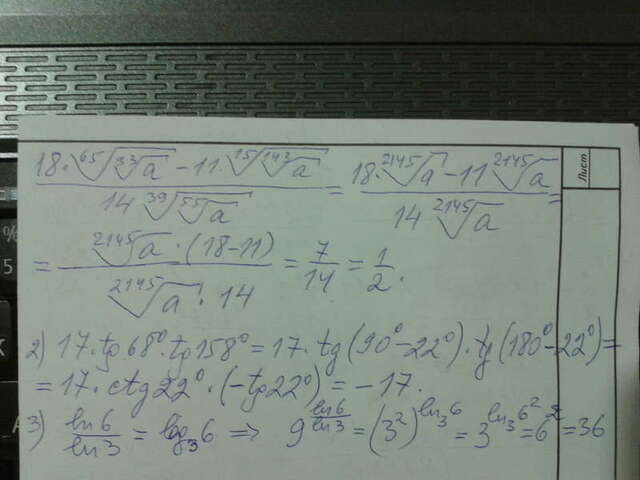 18·⁶⁵√(³³√a) − 11·¹⁵√(¹⁴³√a) / 14 ³⁹√(⁵⁵√a) = 18·²¹⁴⁵√a − 11 ²¹⁴⁵√a / 14 ²¹⁴⁵√a =
= ²¹⁴⁵√a · (18−11) / ²¹⁴⁵√a · 14 = 7/14 = 1/2.
2) 17·tg 68°·tg 158° = 17·tg(90°−22°)·tg(180°−22°) =
= 17·ctg 22°·(−tg 22°) = −17.
3) ln6/ln3 = log₃6 => 9^(ln6/ln3) = (3²)^(ln₃6) = 3^(ln₃6²) = 6² = 36
Лист
%
5
K
A